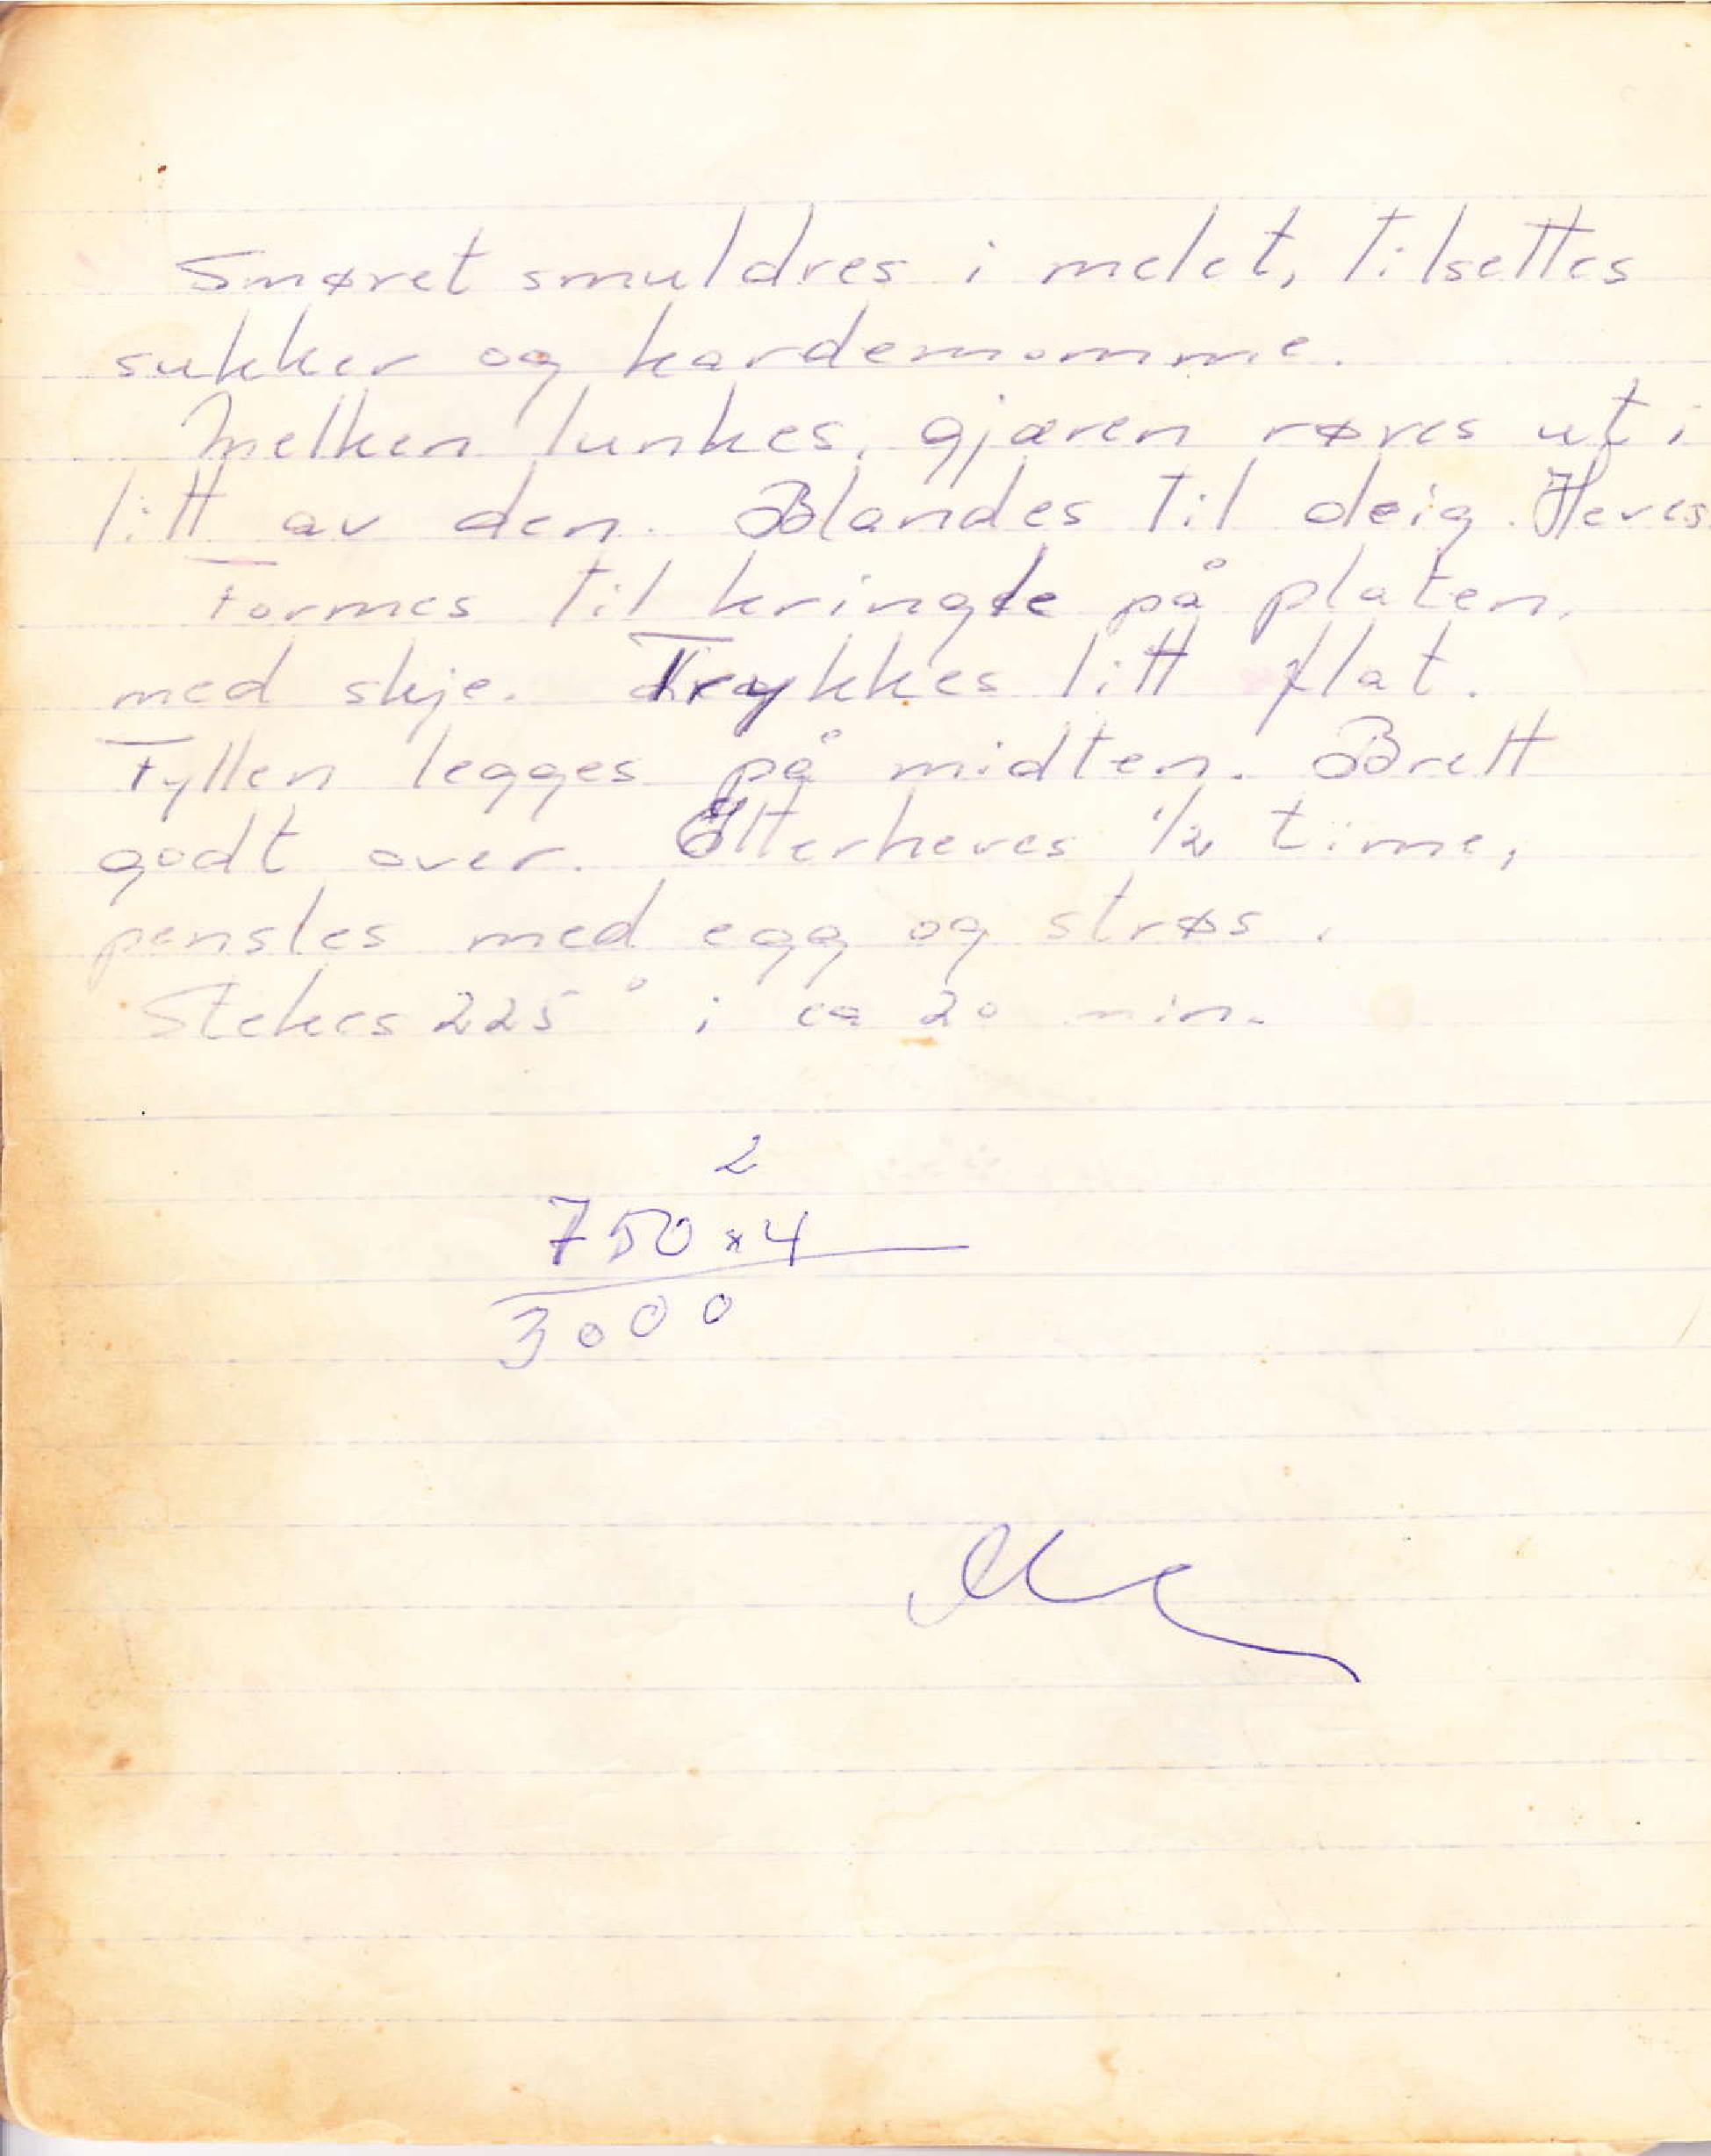 Smøret smuldres i melet, tilsettes
sukker og kardemomme.
Melken lunkes, gjæren røres ut i
litt av den. Blandes til deig. Heves
Formes til kringle på platen.
med skje. Trykkes litt flat.
Fyllen legges på midten. Brett
godt over. Etterheves 1/2 time,
pensles med egg og strøs.
Stekes 225° i ca 20 min.
2
750 x 4
3000